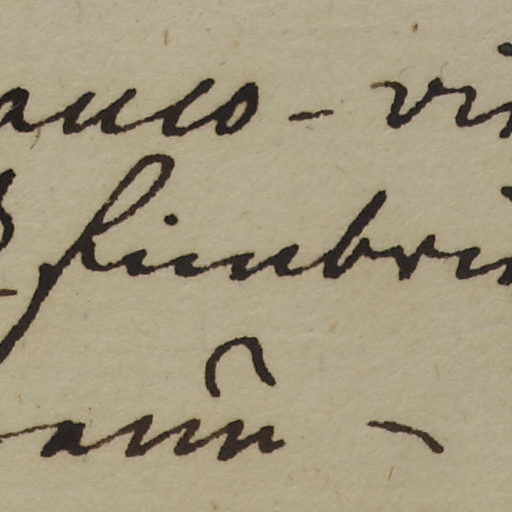 auco - vi
fimbri
aun -